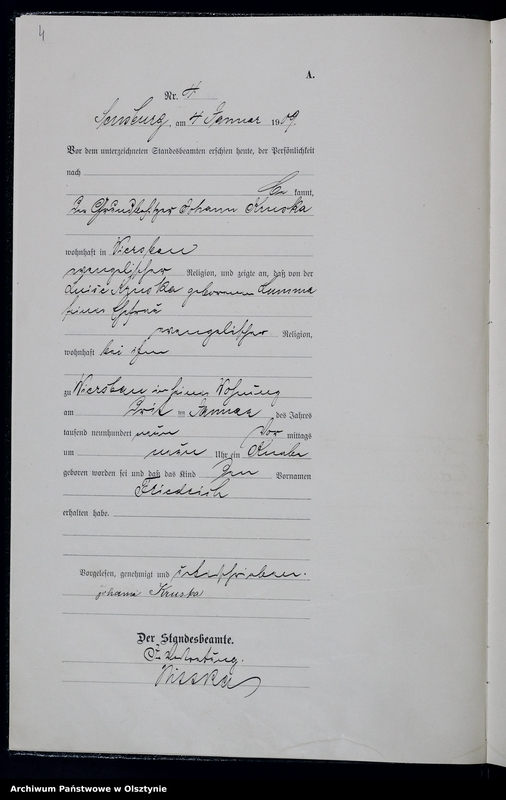 4
A.
Nr. 4.
Sensburg, am 4 Januar 1909.
Vor dem unterzeichneten Standesbeamten erschien heute, der Persönlichkeit
nach
be kannt,
der Grundbesitzer Johann Kruska
wohnhaft in
evangelischer Religion, und zeigte an, daß von der
Luise Kruska geborenen
seiner Ehefrau
evangelischer Religion,
wohnhaft bei ihm
zu in seiner Wohnung
am Januar des Jahres
tausend neunhundert neun Vor mittags
um neun Uhr ein Knabe
geboren worden sei und daß das Kind den Vornamen
Friedrich
erhalten habe.
Vorgelesen, genehmigt und unterschrieben.
Johann Kruska
Der Standesbeamte.
In Vertretung.
Archiwum Państwowe w Olsztynie